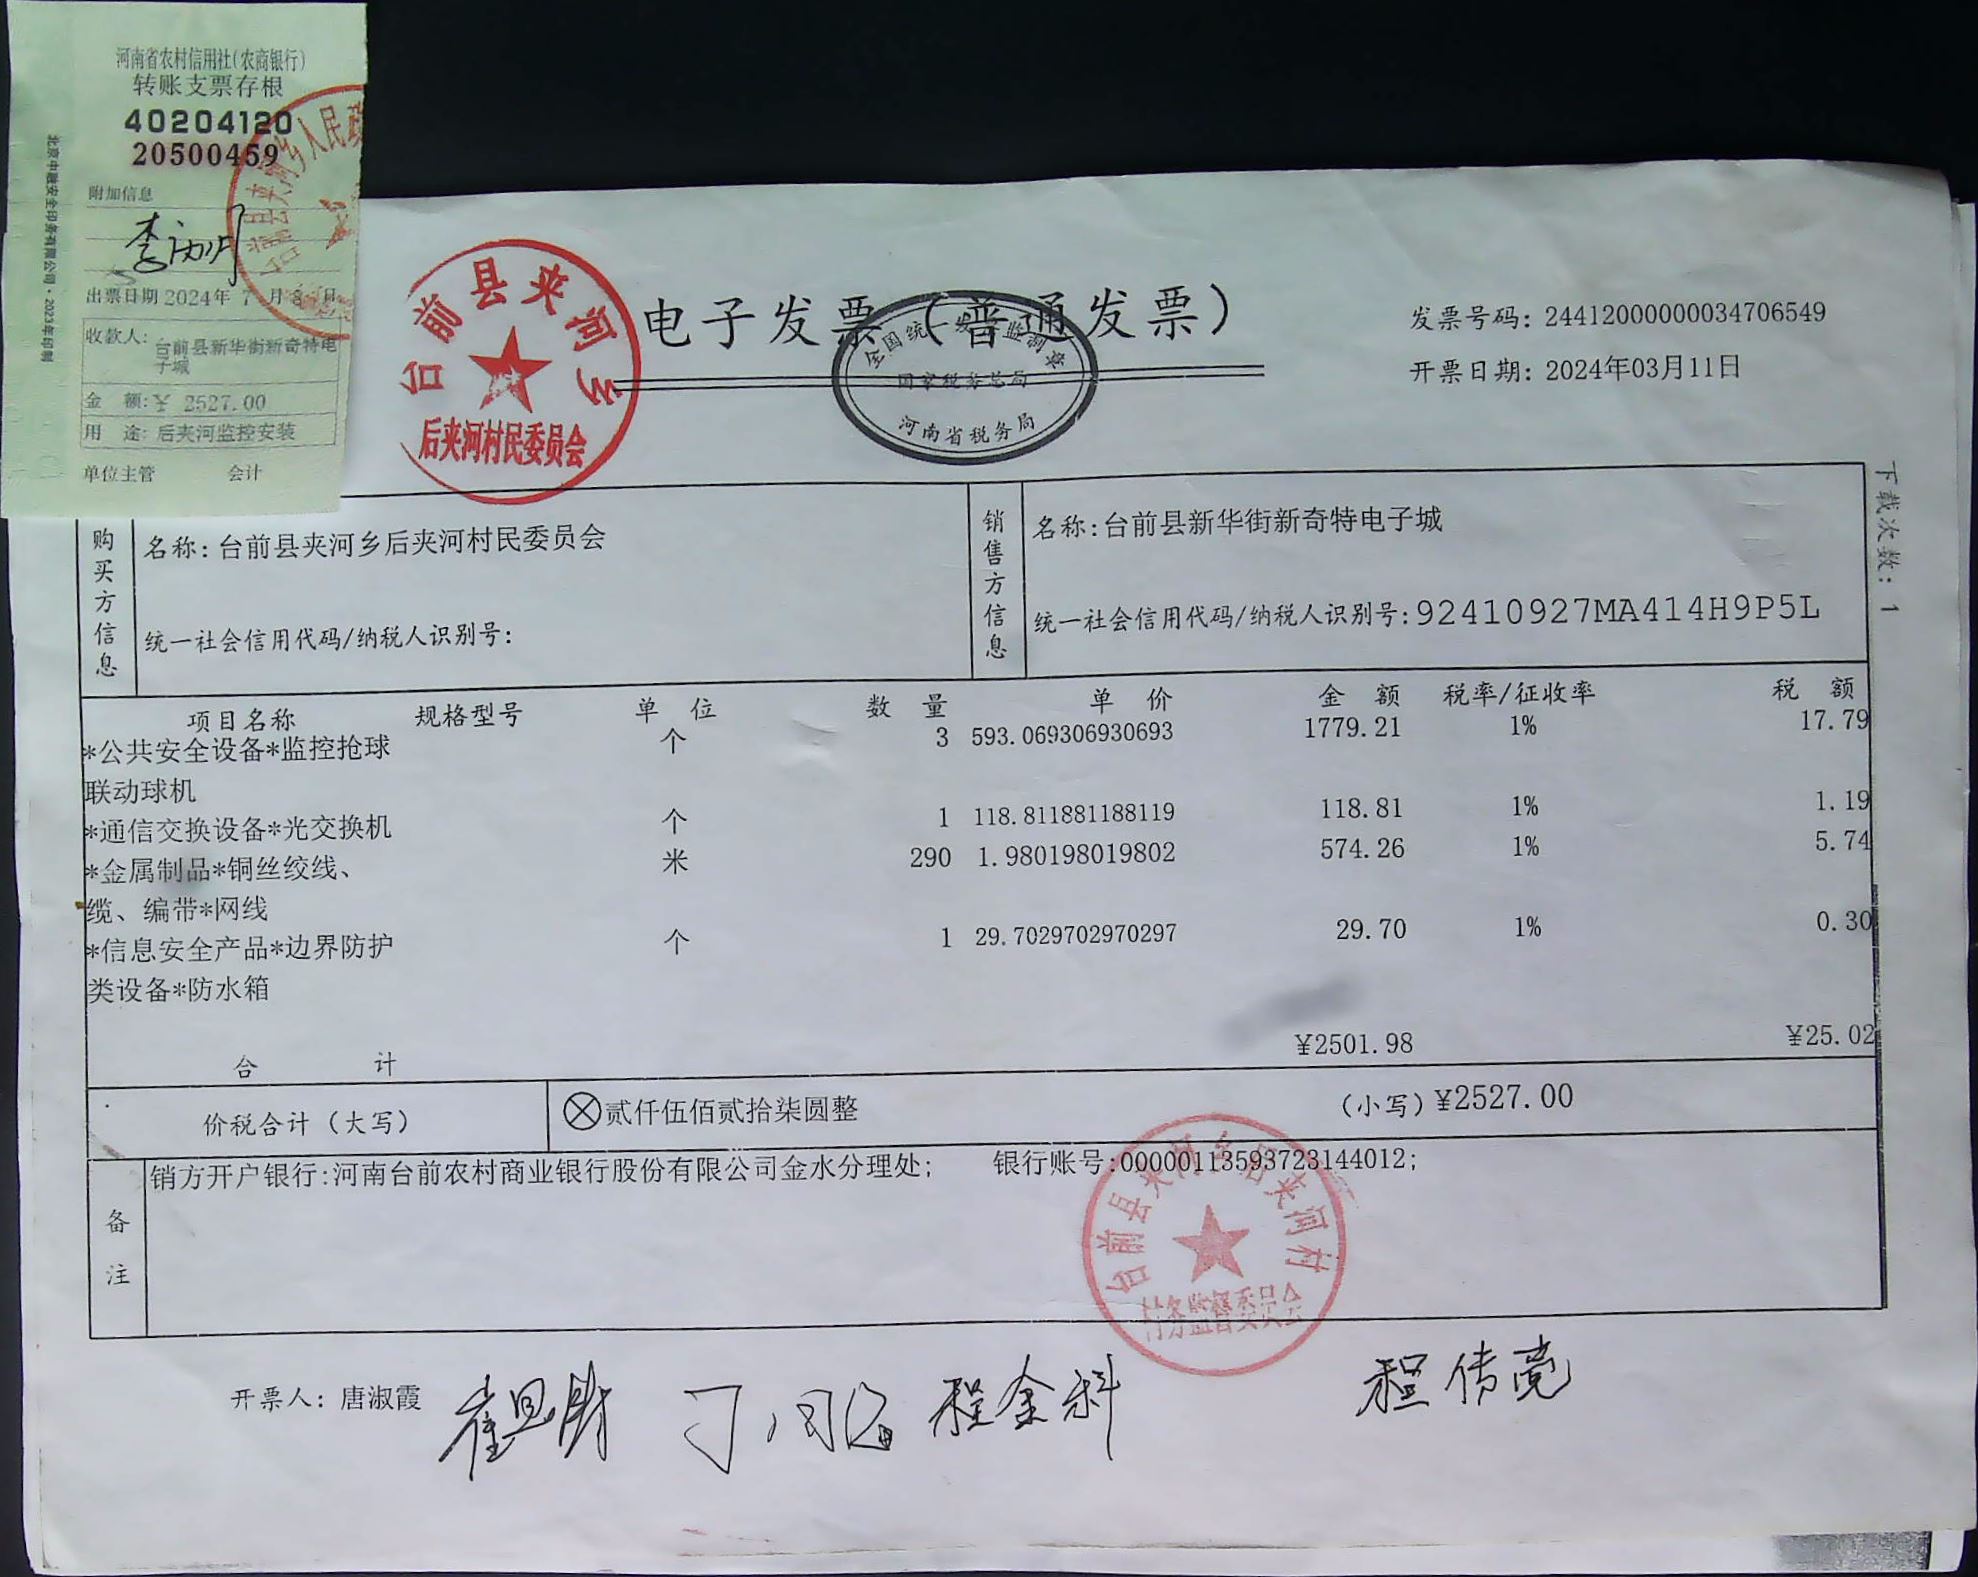 河南省农村信用社(农商银行)
转账支票存根
40204120
20500459
附加信息
出票日期 2024年 7 月 8 日
收款人: 台前县新华街新奇特电
子城
金 额: ¥ 2527.00
用 途: 后夹河监控安装
单位主管 会计
北京中融安全印务有限公司·2023年印制
台前县夹河乡
后夹河村民委员会
电子发票（普通发票）
全国统一发票监制章
国家税务总局
河南省税务局
发票号码: 24412000000034706549
开票日期: 2024年03月11日
下载次数: 1
购买方信息
名称: 台前县夹河乡后夹河村民委员会
统一社会信用代码/纳税人识别号:
销售方信息
名称: 台前县新华街新奇特电子城
统一社会信用代码/纳税人识别号: 92410927MA414H9P5L
项目名称 规格型号 单 位 数 量 单 价 金 额 税率/征收率 税 额
*公共安全设备*监控抢球 个 3 593.069306930693 1779.21 1% 17.79
联动球机
*通信交换设备*光交换机 个 1 118.811881188119 118.81 1% 1.19
*金属制品*铜丝绞线、 米 290 1.980198019802 574.26 1% 5.74
缆、编带*网线
*信息安全产品*边界防护 个 1 29.7029702970297 29.70 1% 0.30
类设备*防水箱
合 计 ¥2501.98 ¥25.02
价税合计（大写） ⊗贰仟伍佰贰拾柒圆整 （小写）¥2527.00
备注
销方开户银行:河南台前农村商业银行股份有限公司金水分理处; 银行账号:00000113593723144012;
台前县夹河乡后夹河村
村务监督委员会
开票人: 唐淑霞
程金科 程传亮